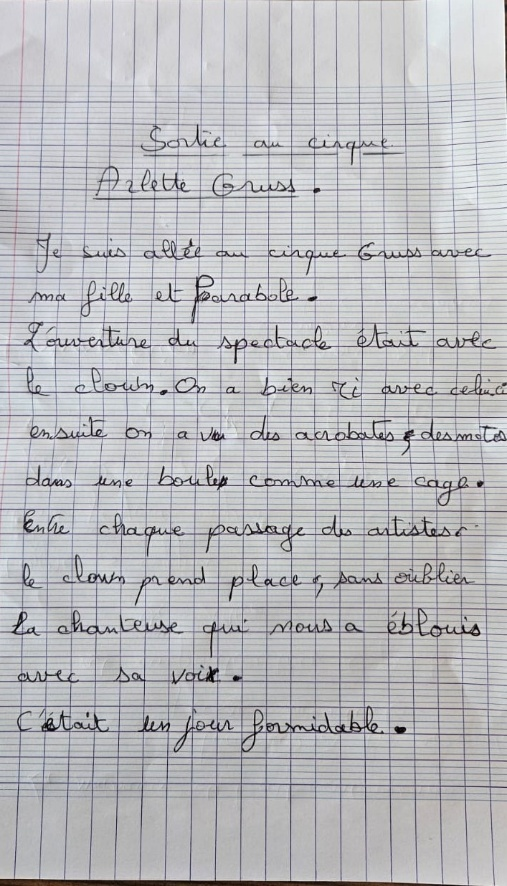 Sortie au cirque
Arlette Gruss.
Je suis allée au cirque Gruss avec
ma fille et Parabole.
L'ouverture du spectacle était avec
le clown. On a bien ri avec celui ci
ensuite on a vu des acrobates, des motos
dans une boule comme une cage.
Entre chaque passage des artistes
le clown prend place, sans oublier
la chanteuse qui nous a éblouis
avec sa voix.
C'était un jour formidable.